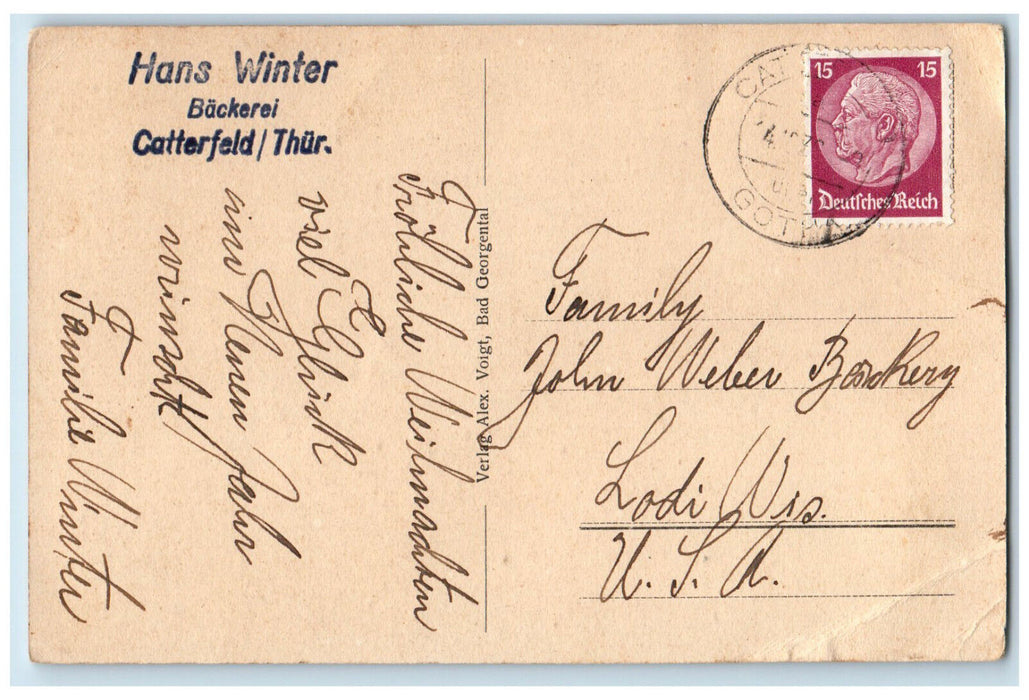 Hans Winter
Bäckerei
Catterfeld/Thür.
Fröhliche Weihnachten
viel Glück
im Neuen Jahr
wünscht
Familie Winter
Verlag Alex. Voigt, Bad Georgental
15 15
Deutsches Reich
GOTHA
Family
John Weber Backery
Lodi Wis.
U. S. A.